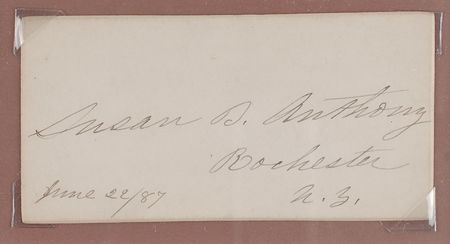 Susan B. Anthony
Rochester
June 22/87 N.Y.